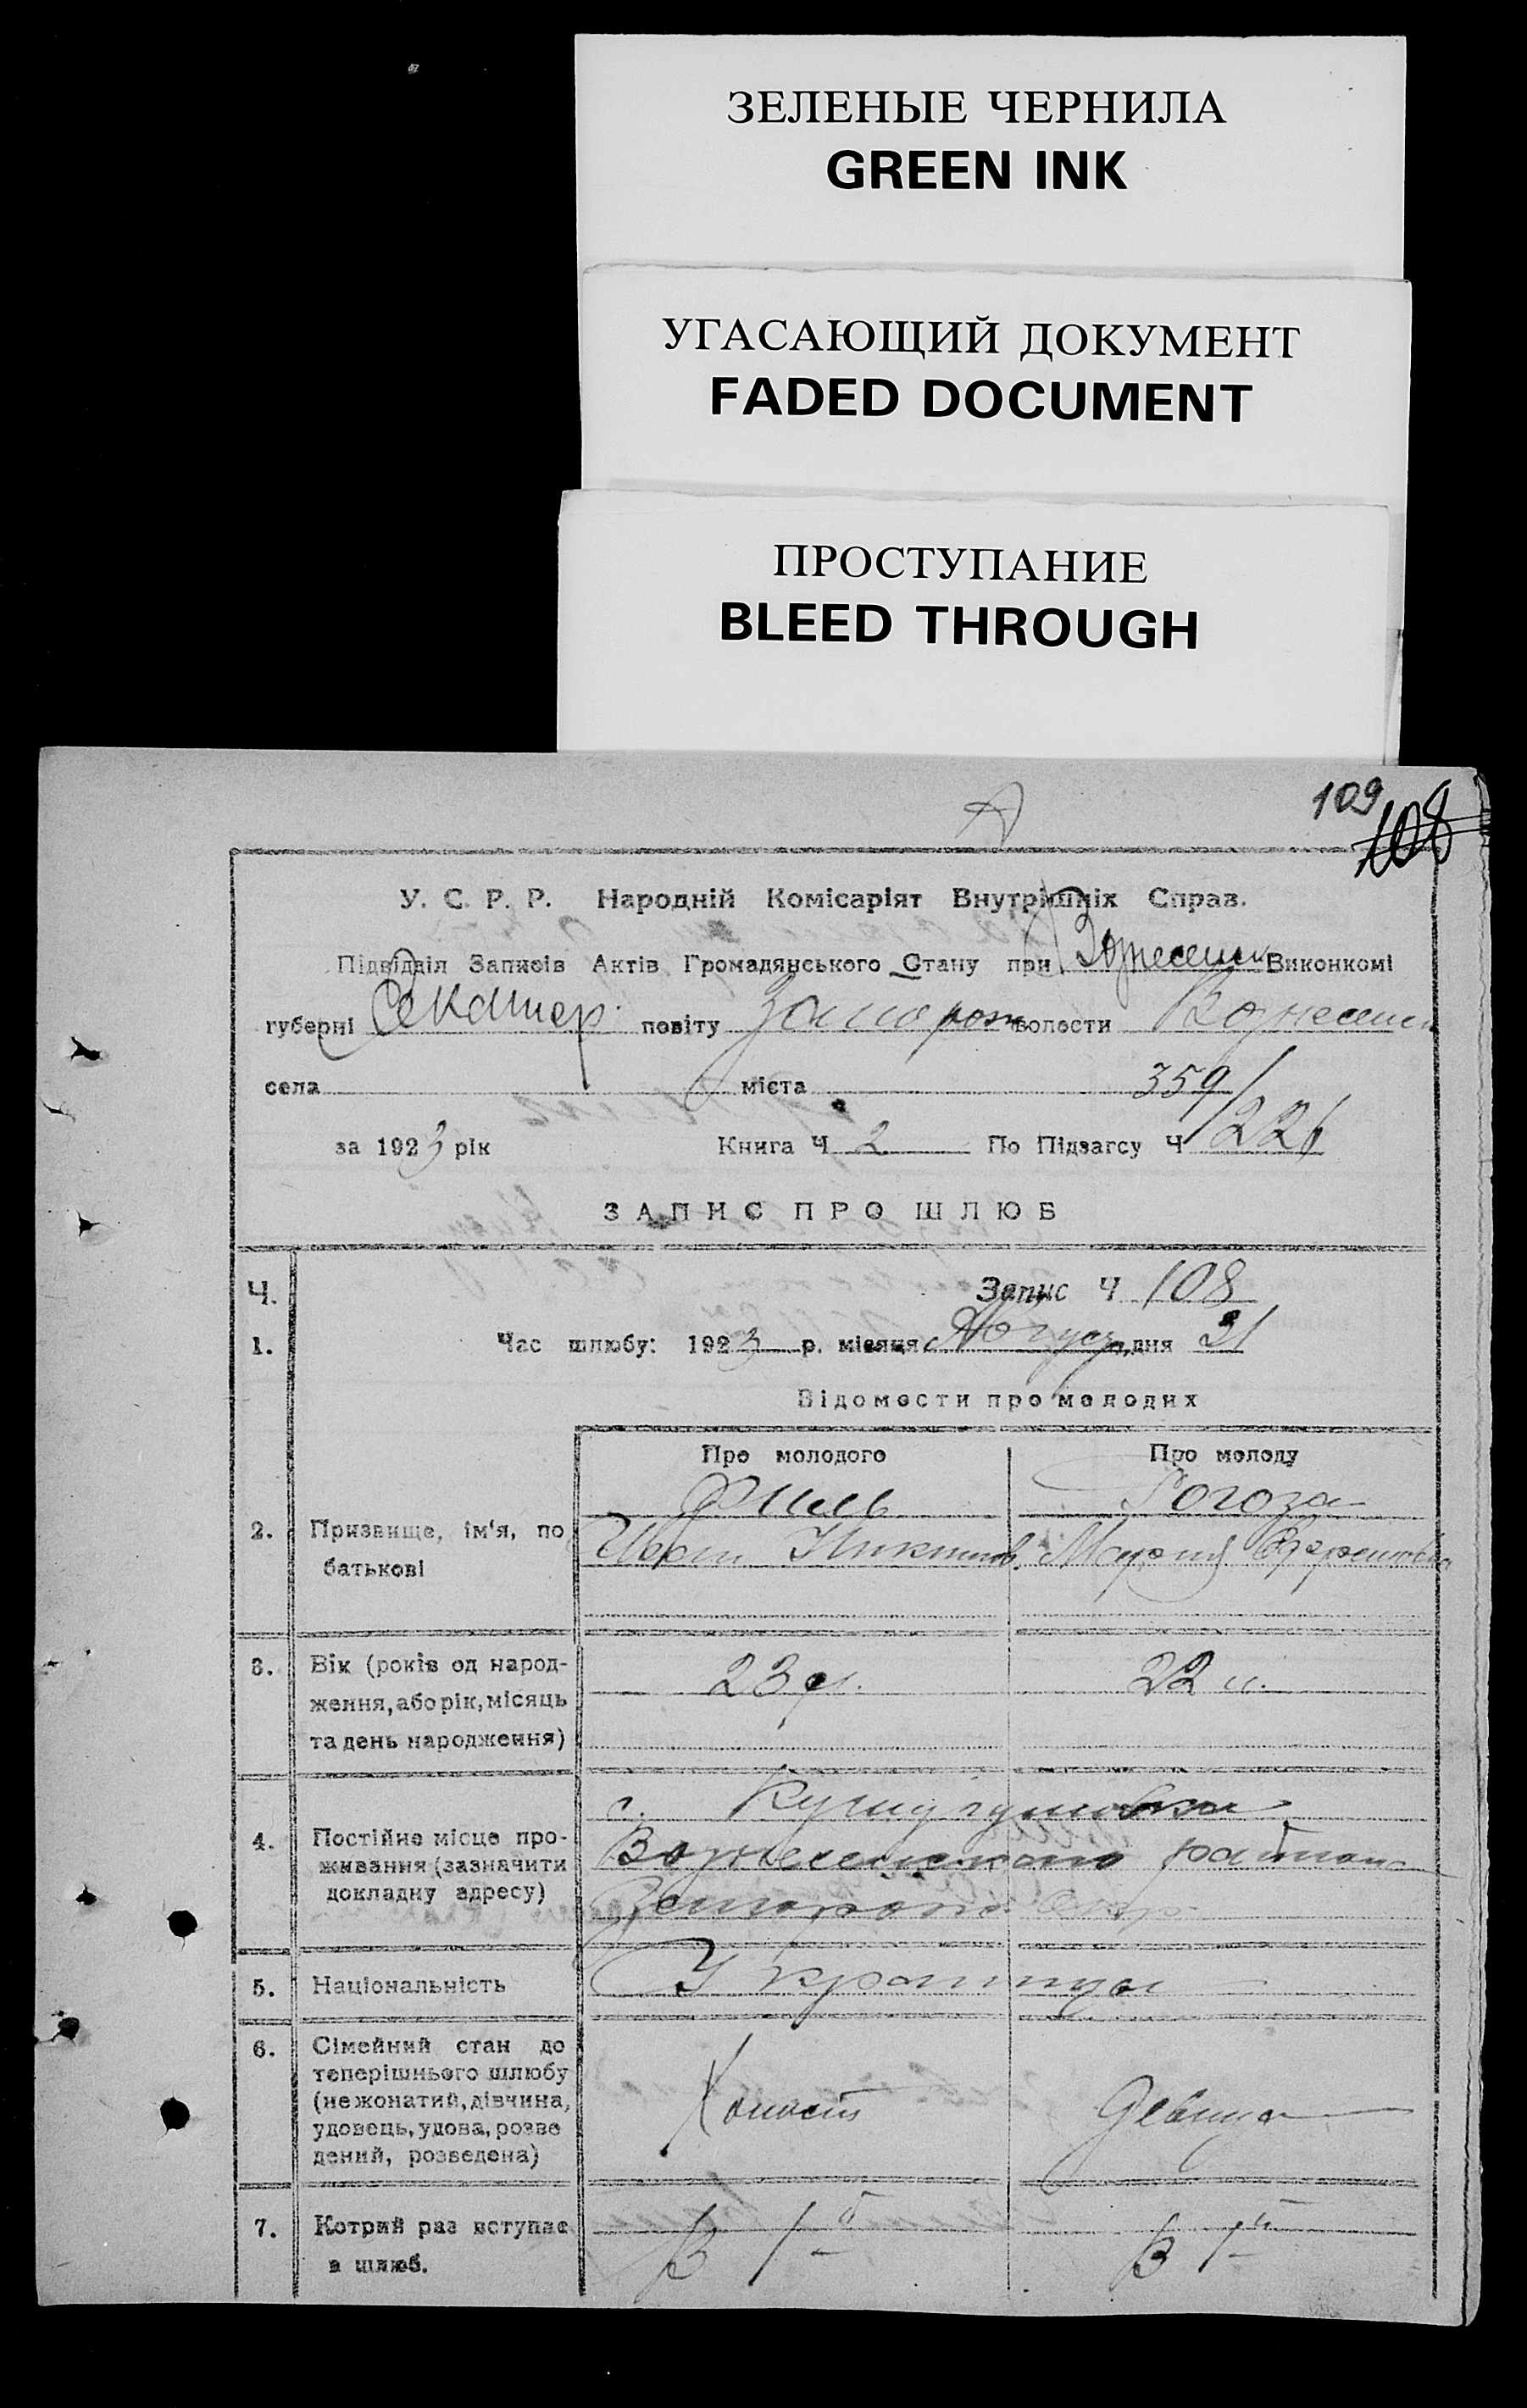 ЗЕЛЕНЫЕ ЧЕРНИЛА
GREEN INK
УГАСАЮЩИЙ ДОКУМЕНТ
FADED DOCUMENT
ПРОСТУПАНИЕ
BLEED THROUGH
109
108
У. С. Р. Р. Народній Комісаріят Внутрішніх Справ.
Підвідділ Записів Актів Громадянського Стану при Вознесенск Виконкомі
губерні Екатер. повіту Запорож волости Вознесенск
села міста 359/
за 1923 рік Книга Ч 2 По Підзагсу Ч 226
ЗАПИС ПРО ШЛЮБ
Ч. Запис Ч 108
1. Час шлюбу: 1923 р. місяця Август дня 21
Відомости про молодих
Про молодого Про молоду
Филь Рогоза
2. Призвище, ім'я, по Иван Никитов. Мария
батькові
3. Вік (років од народ- 23 л. 22 л.
ження, або рік, місяць
та день народження)
с. Кушугумовка
4. Постійне місце про- Вознесенского района
живання (зазначити
докладну адресу) Запорож. Екатер.
5. Національність Украинцы
6. Сімейний стан до
теперішнього шлюбу
(нежонатий, дівчина, Холост Девица
удовець, удова, розве
дений, розведена)
7. Котрий раз вступає В 1й В 1й
в шлюб.